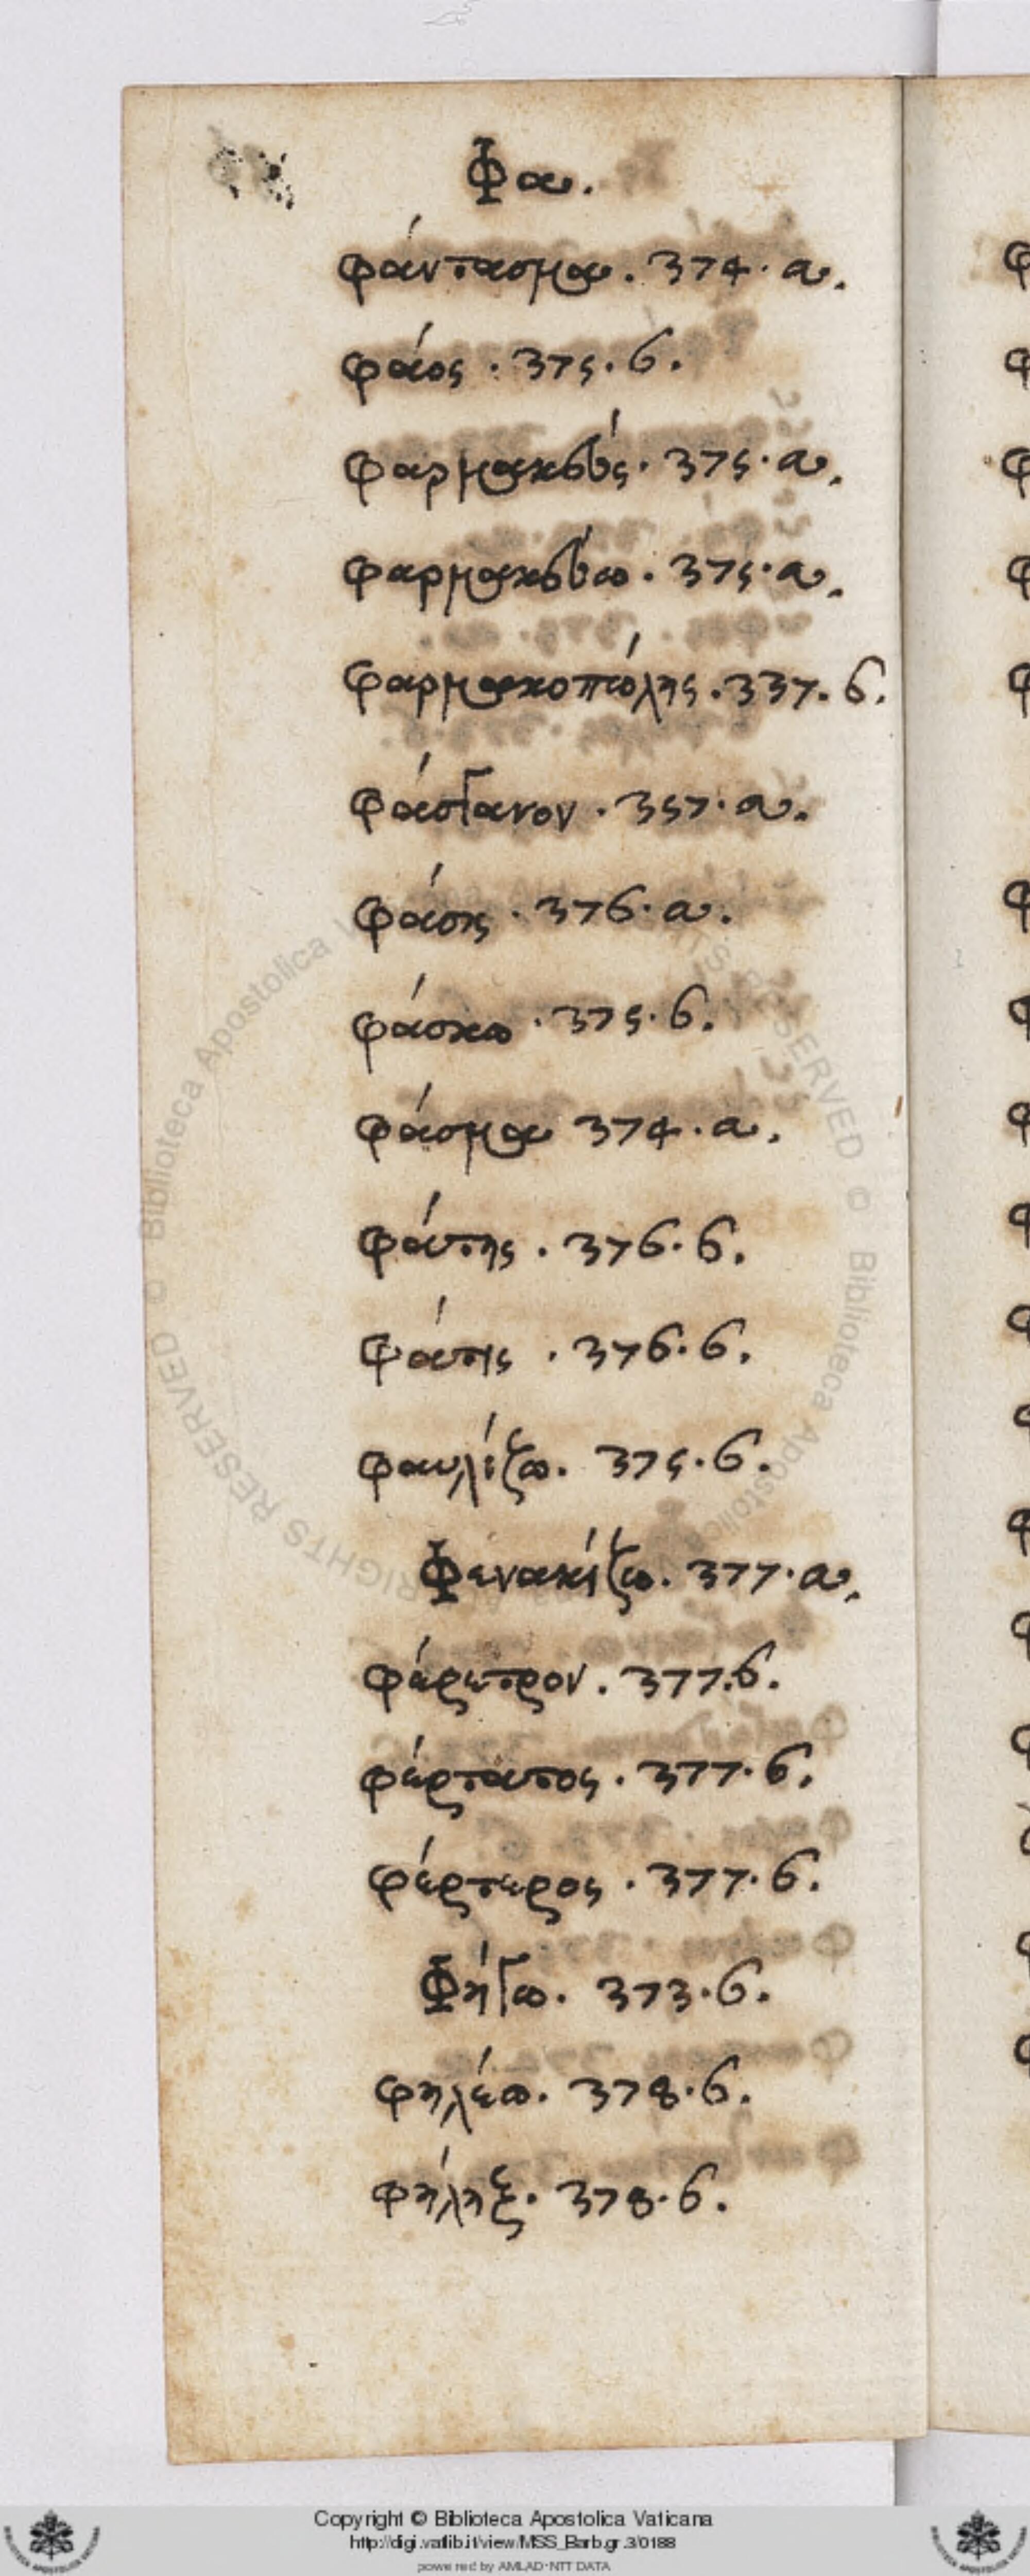 Φα.
φάντασμα. 374. α.
φάος. 375. б.
φαρμακεύς. 375. α.
φαρμακεύω. 375. α.
φαρμακοπώλης. 337. б.
φάσγανον. 357. α.
φάσις. 376. α.
φάσκω. 375. б.
φάσμα 374. α.
φάτης. 376. б.
φάτις. 376. б.
φαυλίζω. 375. б.
Φενακίζω. 377. α.
φέρετρον. 377. б.
φέρτατος. 377. б.
φέρτερος. 377. б.
Φήγω. 373. б.
φηλέω. 378. б.
φήληξ. 378. б.
Copyright © Biblioteca Apostolica Vaticana
http://digi.vatlib.it/view/MSS_Barb.gr.3/0188
powered by AMLAD-NTT DATA